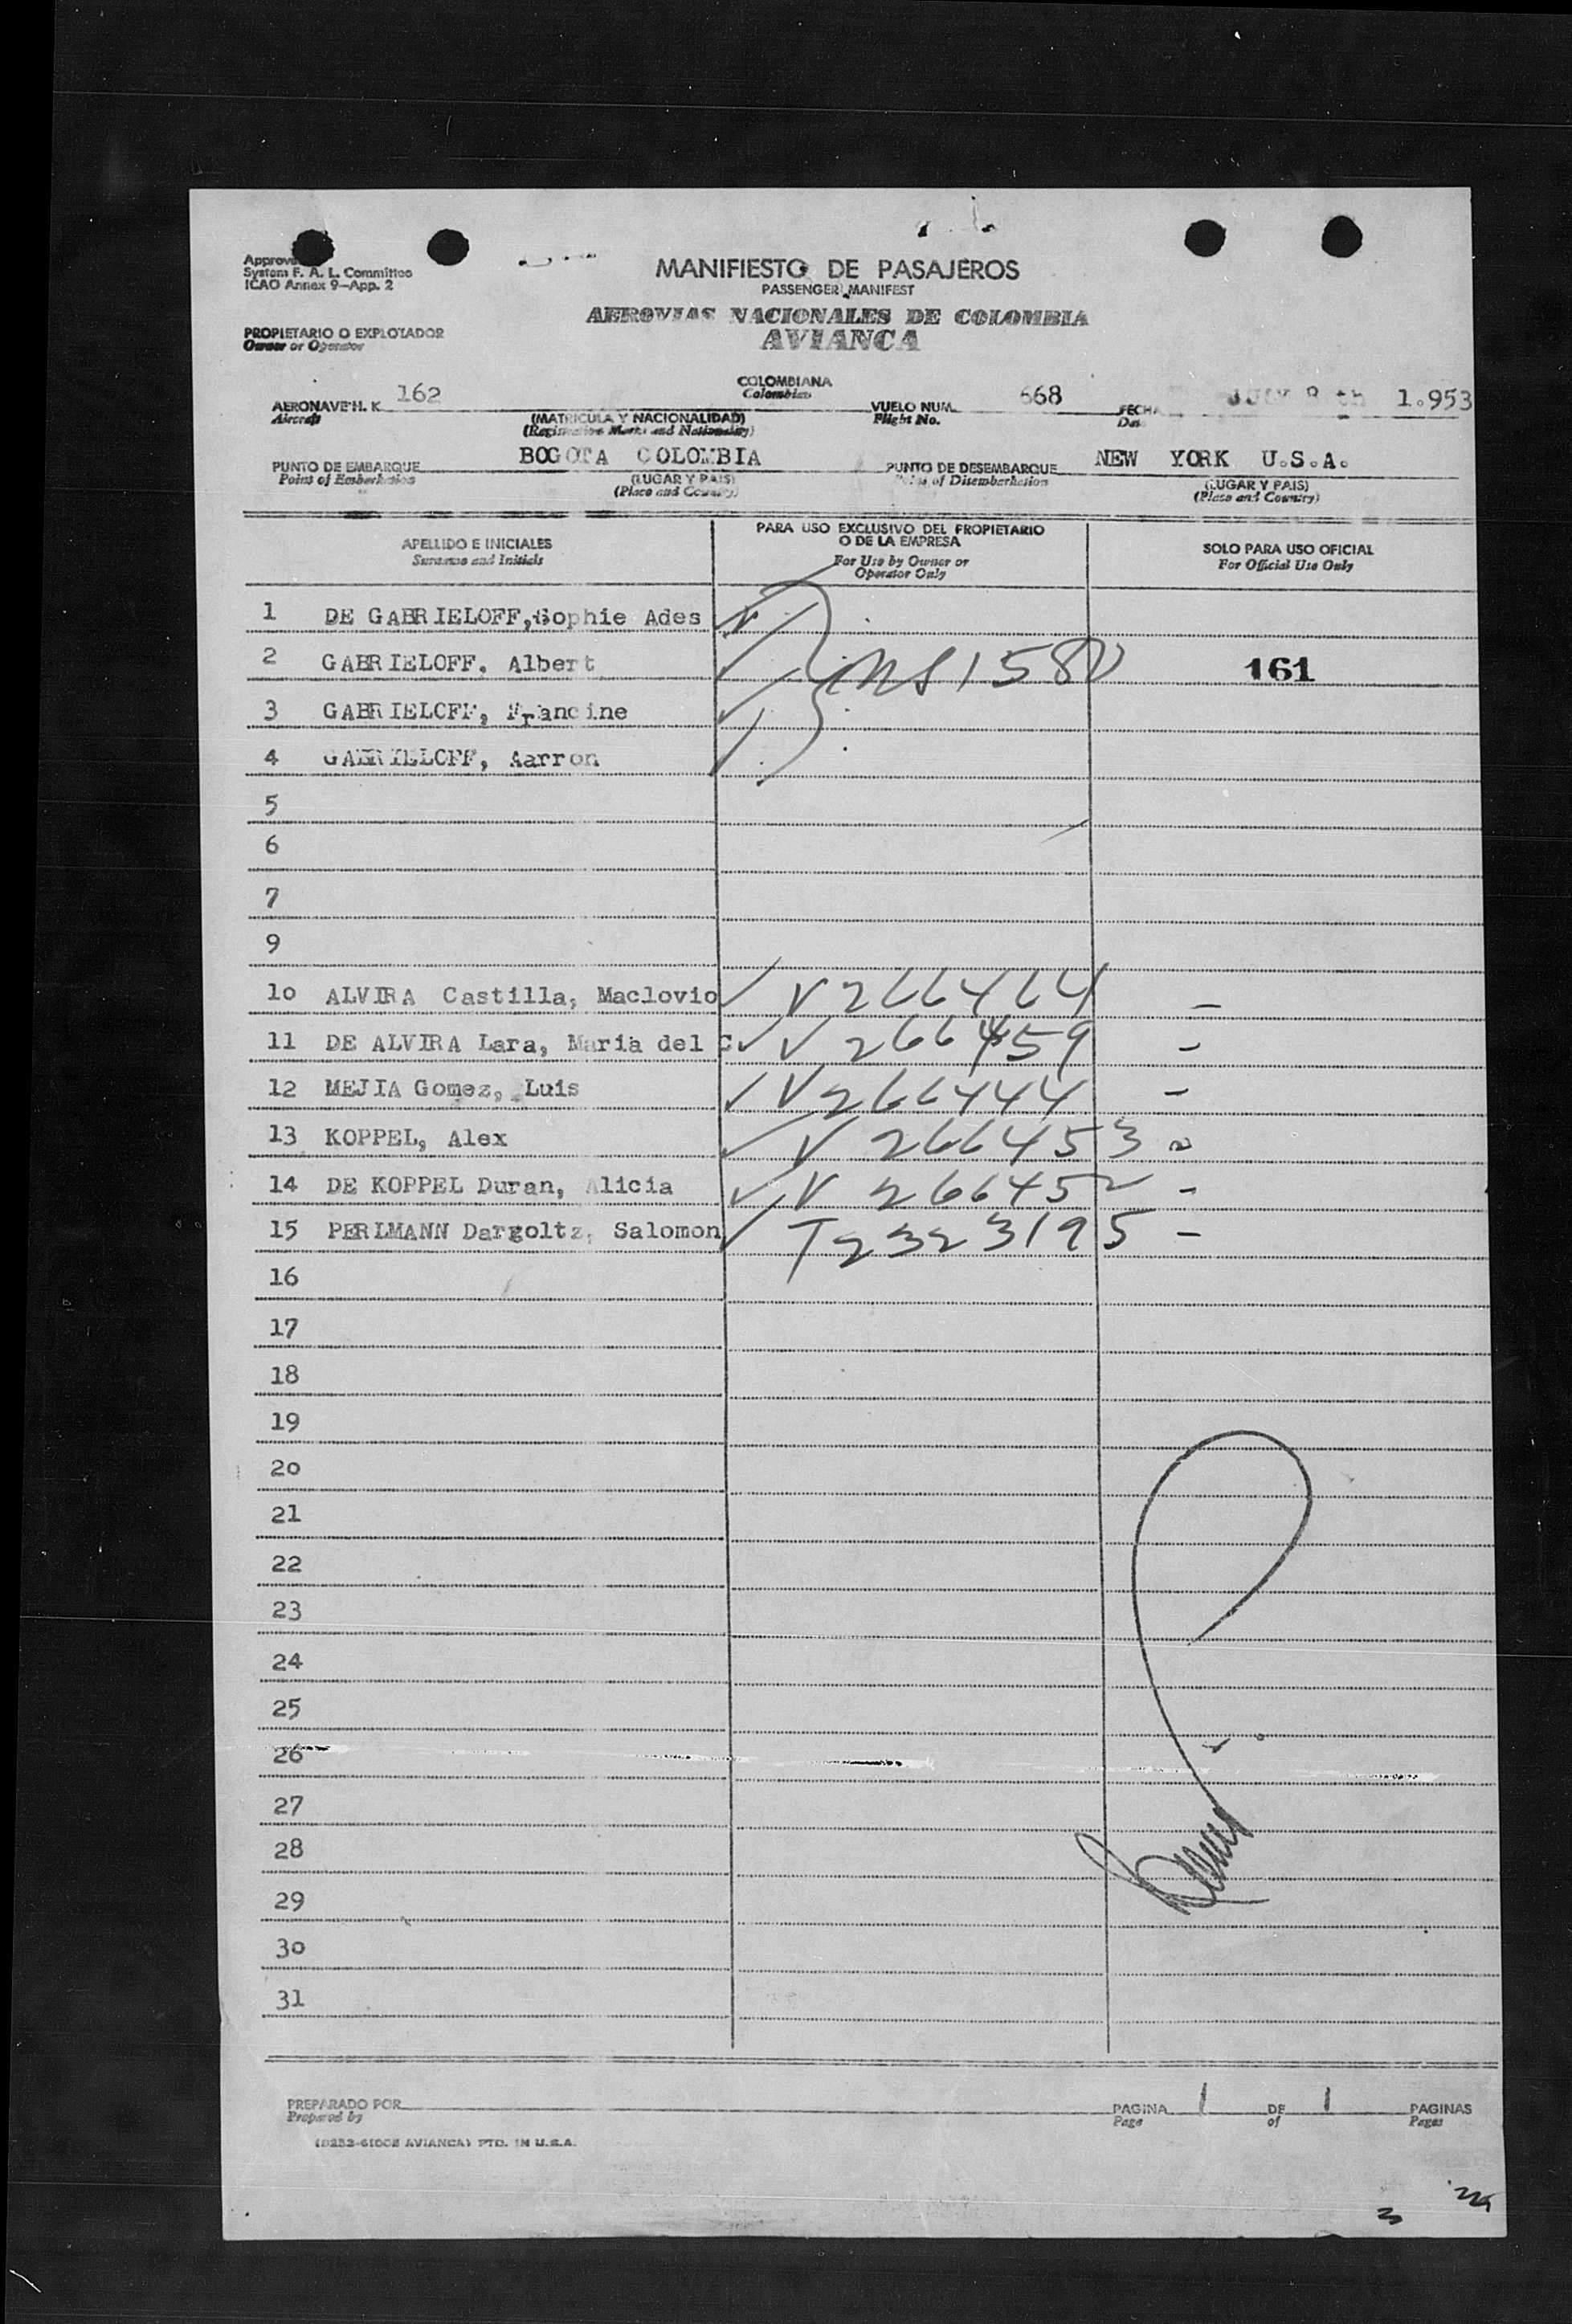 MANIFIESTO DE PASAJEROS
PASSENGER MANIFEST
System F. A. L. Committee
ICAO Annex 9-App. 2
AEROVIAS NACIONALES DE COLOMBIA
AVIANCA
PROPIETARIO O EXPLOTADOR
Owner or Operator
COLOMBIANA
Colombian
AERONAVE H. K 162 VUELO NUM. 668 FECHA JULY 8 th 1.953
Aircraft (MATRICULA Y NACIONALIDAD) Flight No.
(Registration Marks and Nationality)
PUNTO DE EMBARQUE BOGOTA COLOMBIA PUNTO DE DESEMBARQUE NEW YORK U.S.A.
Point of Embarkation (LUGAR Y PAIS) Point of Disembarkation (LUGAR Y PAIS)
(Place and Country) (Place and Country)
APELLIDO E INICIALES
Surname and Initials
PARA USO EXCLUSIVO DEL PROPIETARIO
O DE LA EMPRESA
For Use by Owner or
Operator Only
SOLO PARA USO OFICIAL
For Official Use Only
1 DE GABRIELOFF, Sophie Ades
2 GABRIELOFF. Albert 161
3 GABRIELOFF, Francine
4 GABRIELOFF, Aarron
5
6
7
9
10 ALVIRA Castilla, Maclovio V 266464 -
11 DE ALVIRA Lara, Maria del C. V 266459 -
12 MEJIA Gomez, Luis V 266444 -
13 KOPPEL, Alex V 266453 -
14 DE KOPPEL Duran, Alicia V 266452 -
15 PERLMANN Dargoltz, Salomon T2323195 -
16
17
18
19
20
21
22
23
24
25
26
27
28
29
30
31
PREPARADO POR PAGINA 1 DE 1 PAGINAS
Prepared by Page of Pages